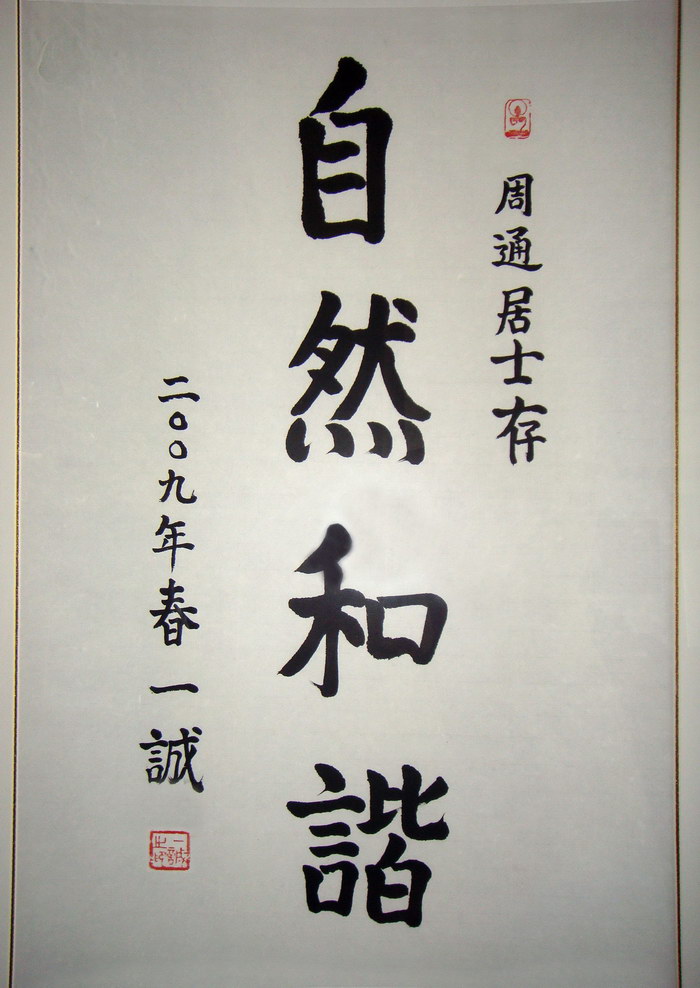 周通居士存
自然和諧
二〇〇九年春一誠
一誠之印